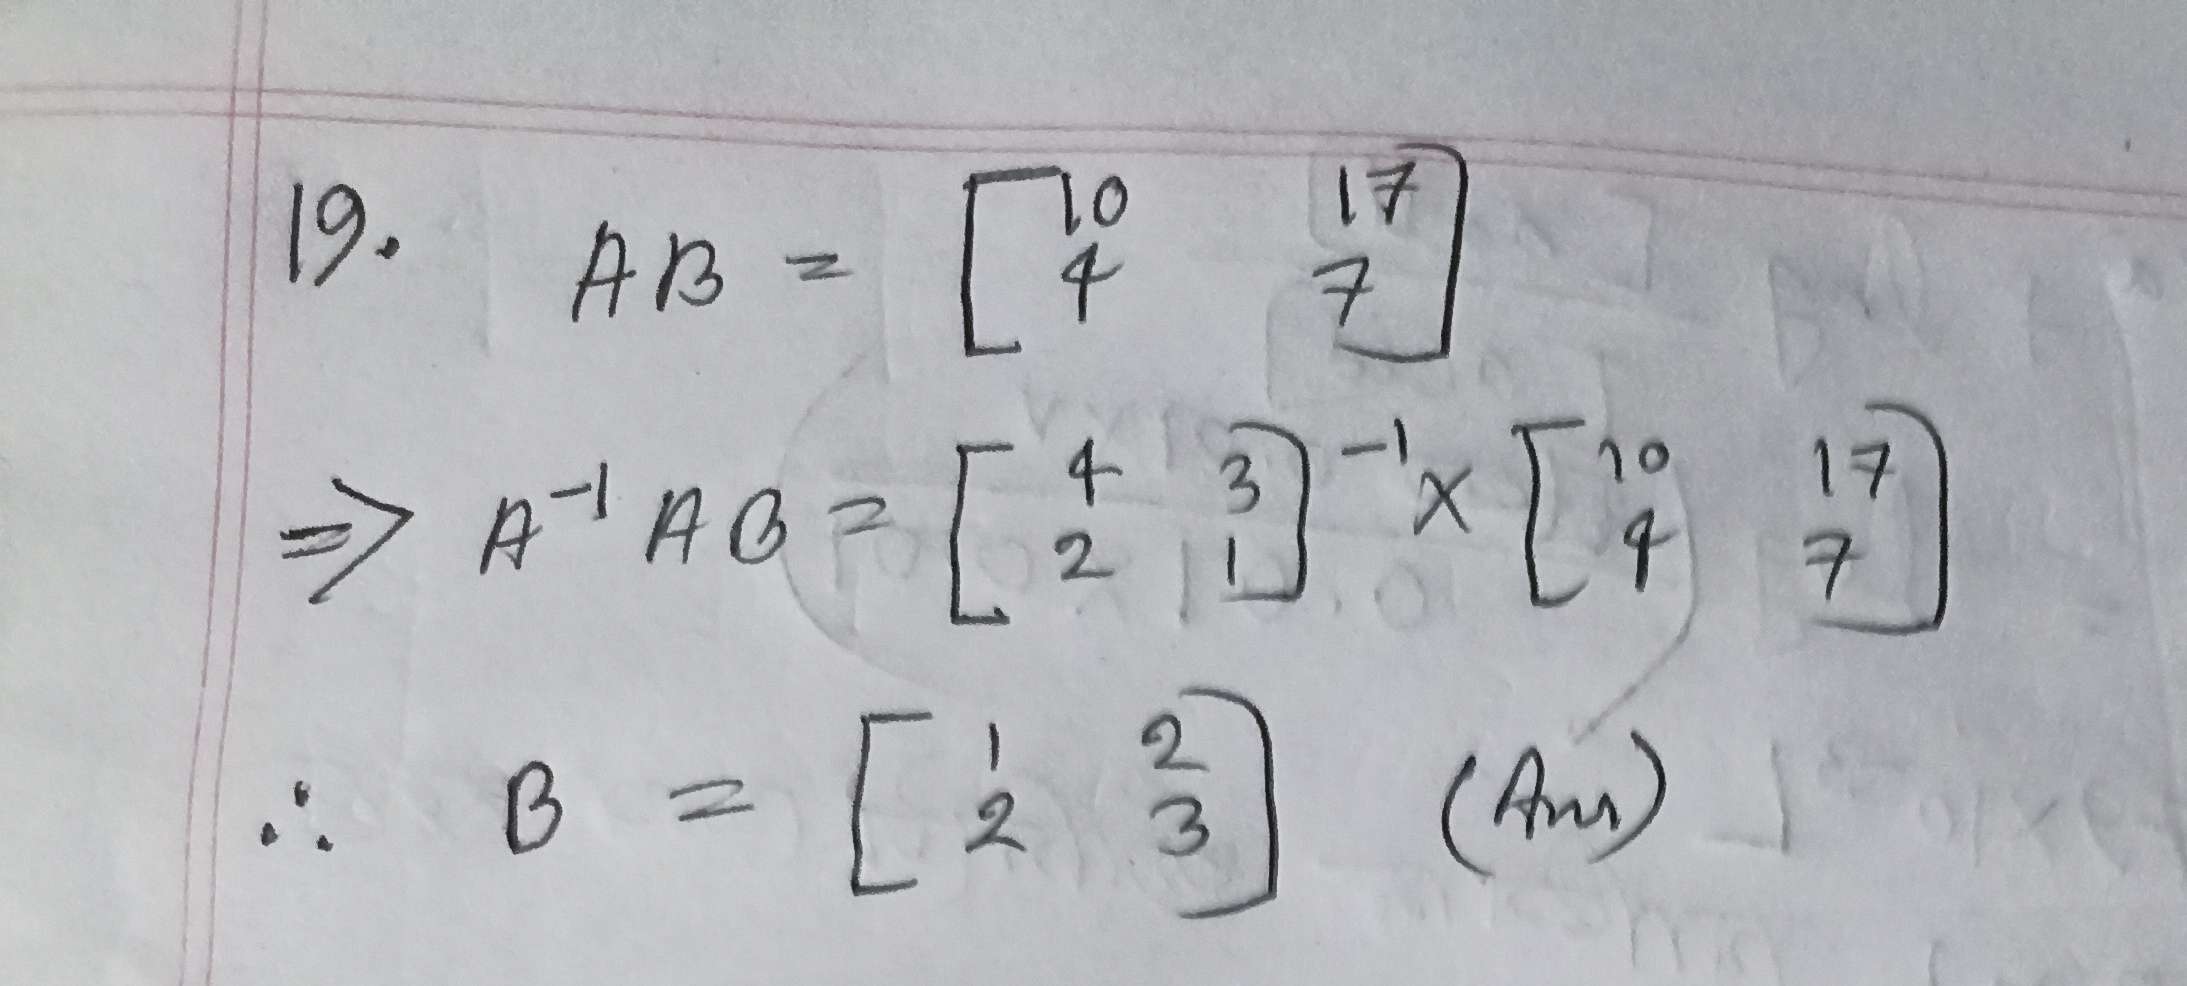 19. AB = [10 17
4 7]
⇒ A⁻¹AB = [4 3
2 1]⁻¹ × [10 17
4 7]
∴ B = [1 2
2 3] (Ans)